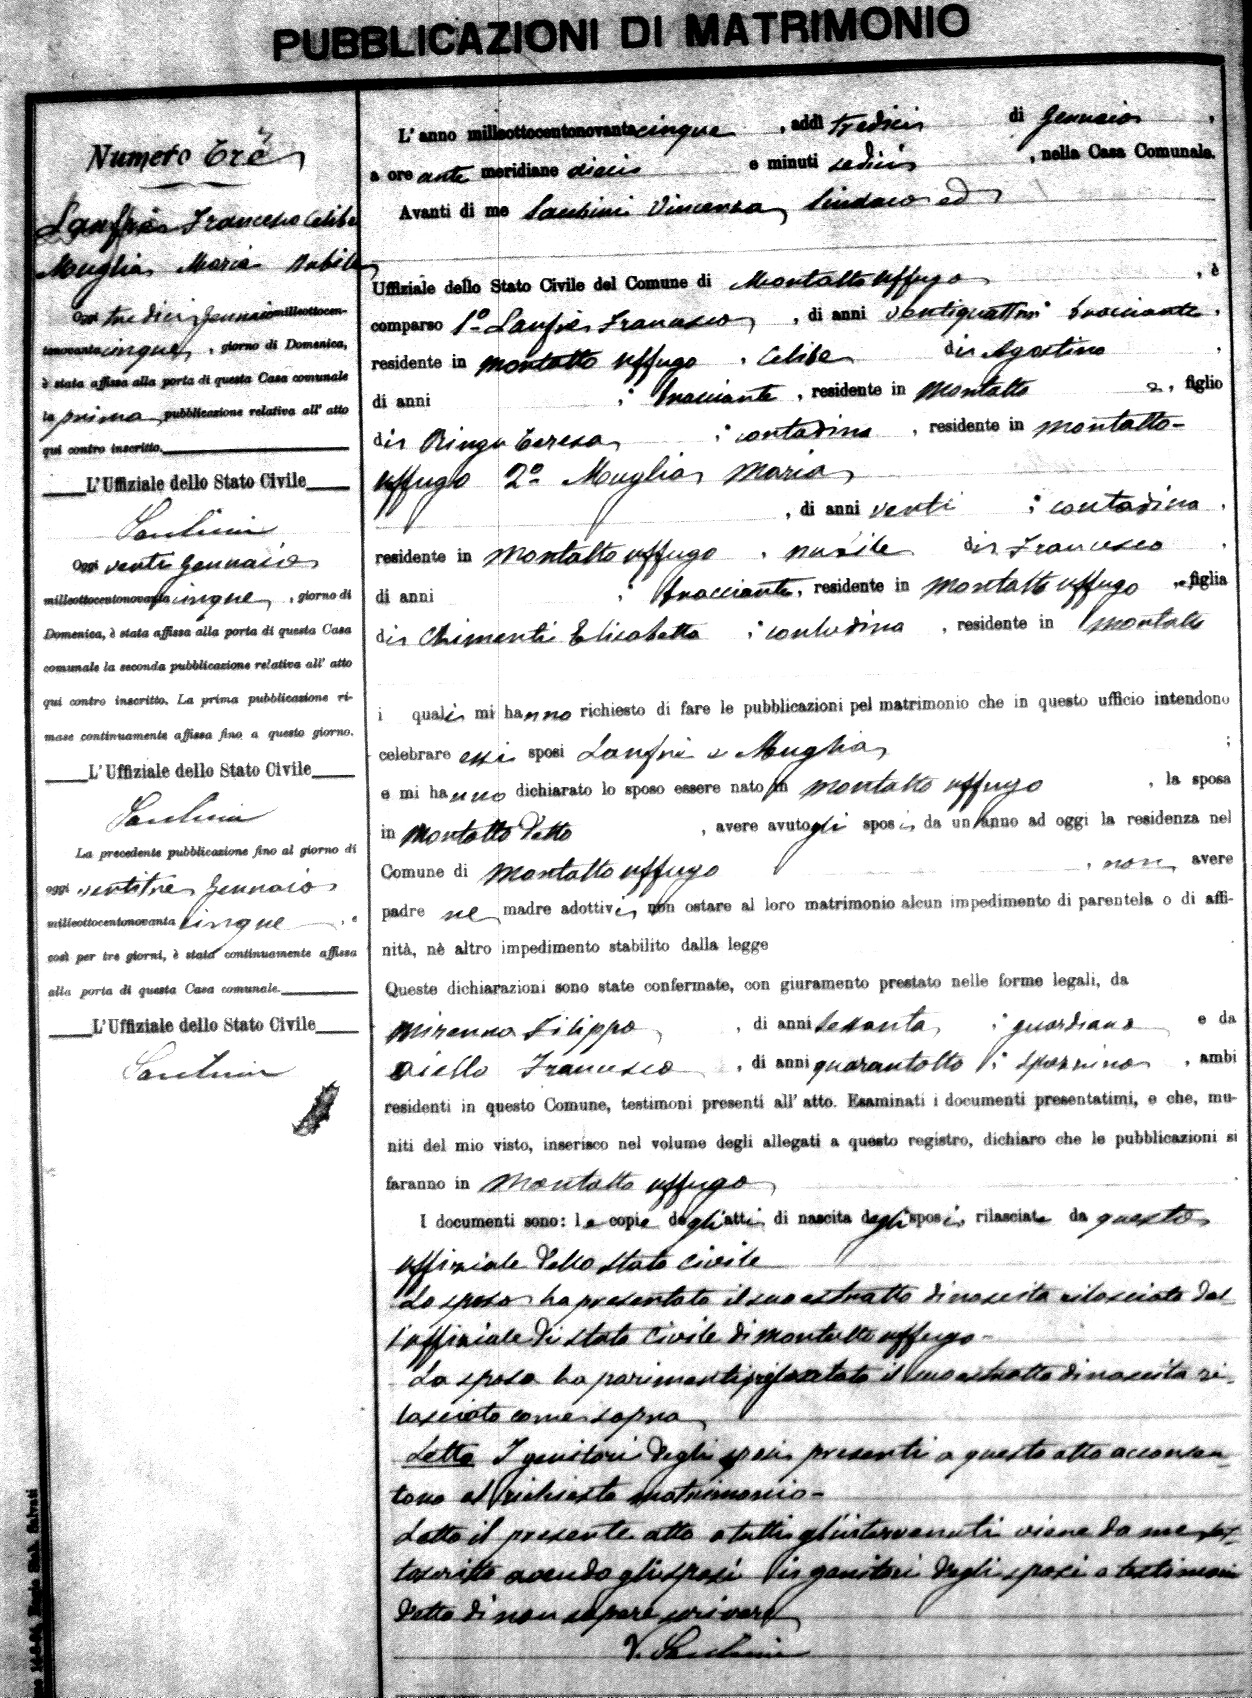 PUBBLICAZIONI DI MATRIMONIO
Numero Tre
Lanfri Francesco Celibe
Muglia Maria Nubile
Oggi tredici Gennaio milleottocen-
tonovantacinque, giorno di Domenica,
è stata affissa alla porta di questa Casa comunale
la prima pubblicazione relativa all' atto
qui contro inscritto.
L'Uffiziale dello Stato Civile
Oggi venti Gennaio
milleottocentonovantacinque, giorno di
Domenica, è stata affissa alla porta di questa Casa
comunale la seconda pubblicazione relativa all' atto
qui contro inscritto. La prima pubblicazione ri-
mase continuamente affissa fino a questo giorno.
L'Uffiziale dello Stato Civile
La precedente pubblicazione fino al giorno di
oggi ventitre Gennaio
milleottocentonovanta cinque, e
così per tre giorni, è stata continuamente affissa
alla porta di questa Casa comunale.
L'Uffiziale dello Stato Civile
L'anno milleottocentonovantacinque, addì tredici di Gennaio,
a ore ante meridiane dieci e minuti sedici, nella Casa Comunale.
Avanti di me Vincenzo Sindaco ed
Uffiziale dello Stato Civile del Comune di Montalto Uffugo, è
comparso 1º Lanfri Francesco, di anni ventiquattro; bracciante,
residente in Montalto Uffugo, celibe di Agostino,
di anni ; bracciante, residente in Montalto e, figlio
di Ringo Teresa ; contadina, residente in Montalto-
Uffugo 2º Muglia Maria
, di anni venti ; contadina,
residente in Montalto Uffugo, nubile di Francesco,
di anni ; bracciante, residente in Montalto Uffugo, e figlia
di Chimenti Elisabetta ; contadina, residente in Montalto
i quali mi hanno richiesto di fare le pubblicazioni pel matrimonio che in questo ufficio intendono
celebrare essi sposi Lanfri e Muglia ;
e mi hanno dichiarato lo sposo essere nato in Montalto Uffugo, la sposa
in Montalto detto, avere avuto gli sposi da un anno ad oggi la residenza nel
Comune di Montalto Uffugo, non avere
padre ne madre adottivi, non ostare al loro matrimonio alcun impedimento di parentela o di affi-
nità, nè altro impedimento stabilito dalla legge
Queste dichiarazioni sono state confermate, con giuramento prestato nelle forme legali, da
Mirenna Filippo, di anni sessanta ; guardiano e da
Aiello Francesco, di anni quarantotto ; spazzino, ambi
residenti in questo Comune, testimoni presenti all' atto. Esaminati i documenti presentatimi, e che, mu-
niti del mio visto, inserisco nel volume degli allegati a questo registro, dichiaro che le pubblicazioni si
faranno in Montalto Uffugo
I documenti sono: le copie degli atti di nascita degli sposi, rilasciate da questo
uffiziale dello stato civile
Lo sposo ha presentato il suo estratto di nascita rilasciato dal-
l'uffiziale di stato civile di Montalto Uffugo-
La sposa ha parimenti presentato il suo estratto di nascita ri-
lasciato come sopra
Letto I genitori degli sposi presenti a questo atto acconsen-
tono al richiesto matrimonio-
Letto il presente atto a tutti gl'intervenuti viene da me sot-
toscritto avendo gli sposi i genitori degli sposi e testimoni
detto di non sapere scrivere